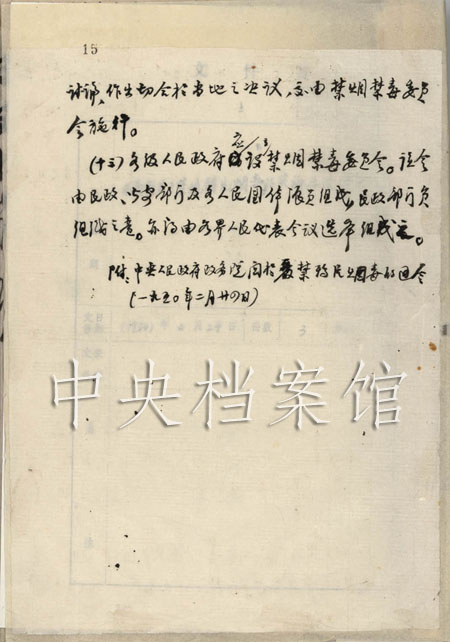 15
讨论,作出切合於当地之决议,交由禁烟禁毒委员
会施行。
(十三)各级人民政府应设禁烟禁毒委员会。该会
由民政、公安部门及各人民团体派员组成,民政部门负
组织之责。亦得由各界人民代表会议选举组成之。
附:中央人民政府政务院关於严禁鸦片烟毒的通令
(一九五〇年二月廿四日)
中央档案馆
3